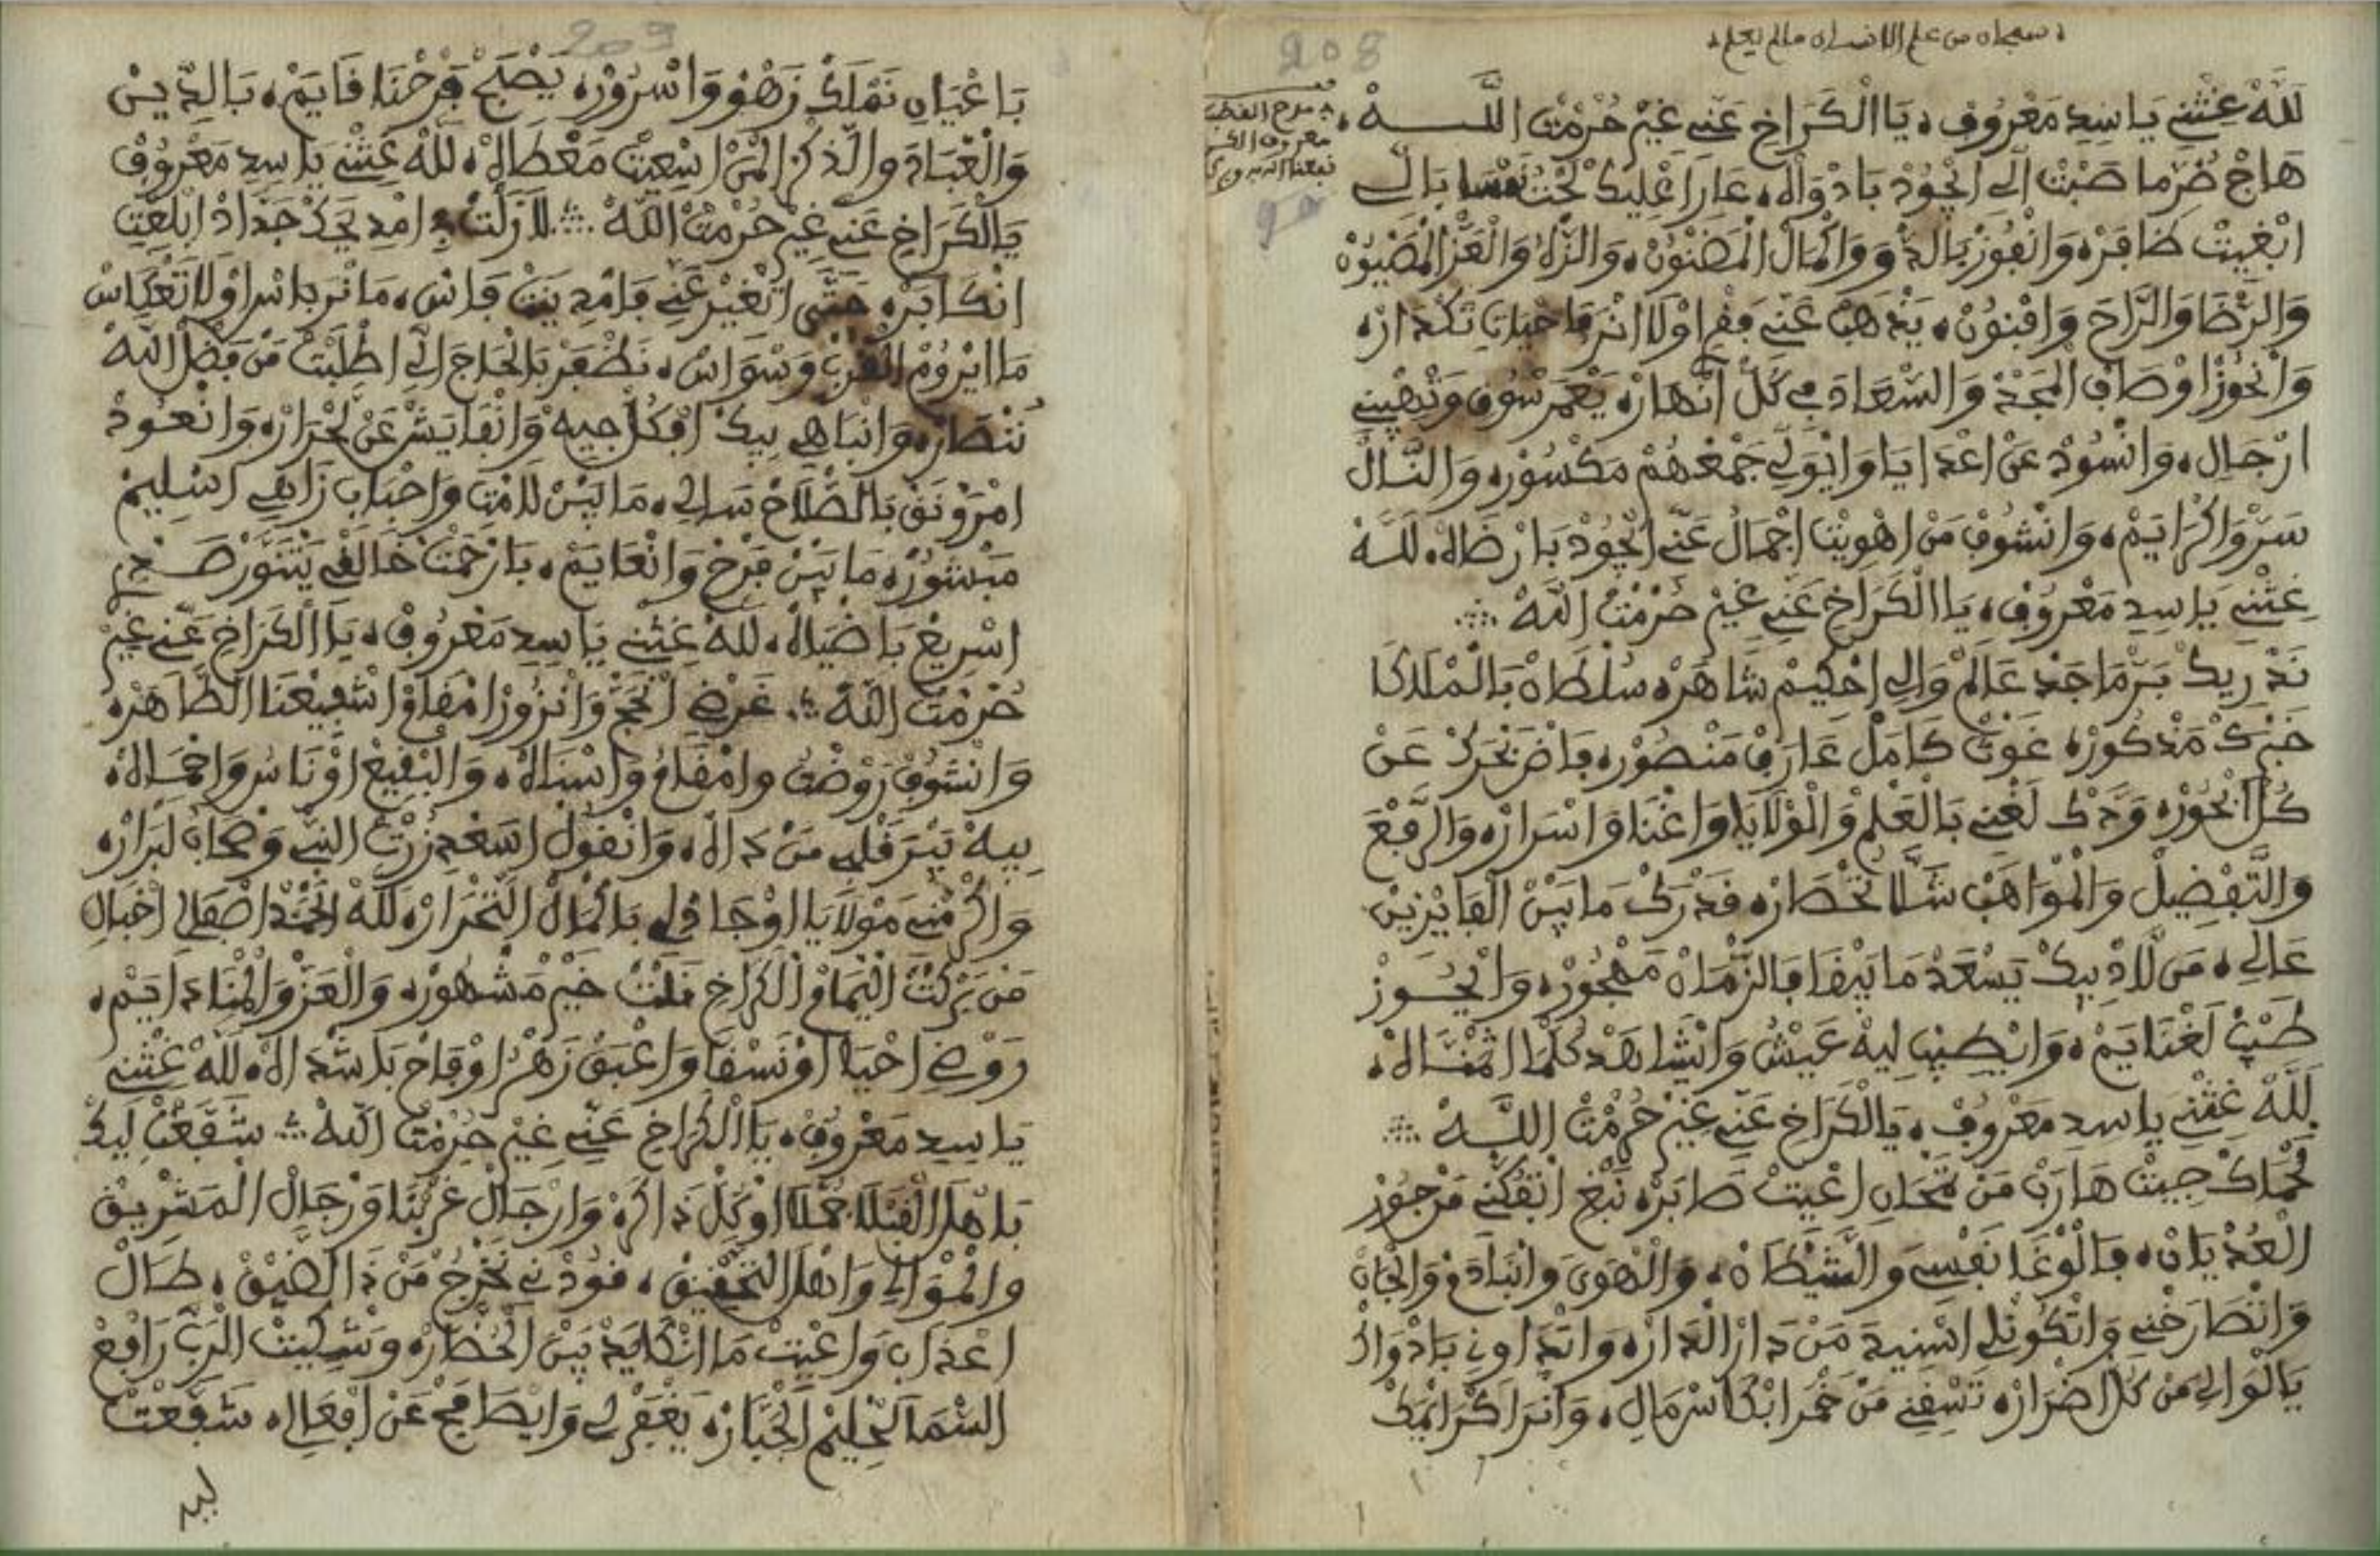 208
سبحان من علم الانسان ما لم يعلم
مدح القطب
معروف الكر
نفعنا الله به
للَّهْ غِثْنِي يَا سِيدِ مَعْرُوفْ، يَا الْكَرَاخِ عَنِّي غِيرْ حُرْمْتْ اللَّـــهْ،
هَاجْ ضُرّ مَا صَبْتْ الِّي ايْجُودْ بَادْوَاهْ، عَارَا عْلِيكْ لَحْتْ بَالِي
ابْغِيتْ ظَافْرَه وَانْفُوزْ بَالدّ وَوَالْمَالْ الْمَضْنُونْ، وَالزّهْ وَالْعَزّ الْمَصْيُونْ
وَالرّْضَا وَالرَّاحَ وَافْنُونْ، يَذْهَبْ عَنِّي وْلَا انْرَ فَاحْيَاتِ تَكْدَارْ،
وَانْحُوزْ اوْصَافْ الْمَجْدْ وَالسّْعَادَ فِي كُلّْ انْهَارْ، يَعْمَرْ سُوقِ وَتْبْهِينِي
ارْجَالِ، وَانْسُودْ عَنْ اعْدَايَا وَايْوَلِّي جَمْعْهُمْ مَكْسُورْ، وَالنَّالْ
سَرّْ وَاكْرَايَمْ، وَانْشُوفْ مَنْ اهْوِيتْ اجْمَالُ عَنِّي ايْجُودْ بَارْضَاهْ، للّهْ
غِثْنِي يَا سِيدِ مَعْرُوفْ، يَا الْكَرَاخِ عَنِّي غِيرْ حُرْمْتْ اللَّهْ
نَدْرِيكْ بَرّ مَاجَدْ عَالَمْ وَالِي احْكِيمْ شَاهَرْ، سُلْطَانْ بَالْمْلَاكَا
خَبْرَكْ مَذْكُورْ، غَوْثْ كَامَلْ عَارَفْ مَنْصُورْ، فَاضْ بَحْرَكْ عَنْ
كُلّْ ابْحُورْ، وَدّكْ لَغْنِي بَالْعَلْمْ وَالْوْلَايَا وَاغْنَا وَاسْرَارْ، وَالرَّفْعَ
وَالتَّفْضِيلْ وَالْمْوَاهَبْ شَلَّا تَحْصَارْ، قَدْرَكْ مَا بِينْ الْفَايْزِينْ
عَالِي، مَن لَّادْ بِيكْ يَسْعَدْ مَا يَبْقَا فَالزّْمَانْ مَهْجُورْ، وَايْحُـــوزْ
طَيَبْ لَغْنَايَمْ، وَايْطِيبْ لِيهْ عَيْشُ وَايْشَاهَدْ كُلّمَا اتْمْنَّـــاهْ،
للَّهْ غِثْنِي يَا سِيدِ مَعْرُوفْ، يَا لْكَرَاخِ عَنِّي غِيرْ حُرْمْتْ اللَّـــهْ
لَحْمَاكْ جِيتْ هَارَبْ مَنْ مْحَانِ اعْيِيتْ صَابَرْ، نَبْغِ اتْفُكّْنِي مَنْ جُورْ
الْعُدْيَانْ، فَالْوْغَا نَفْسِي وَالشّيْطَانْ، وَالْهْوَى وَابْنَادَمْ وَالْجَانْ
وَانْصَارَخْنِي وَاتْكُونْلِي اسْنِيدَ مَنْ دَارْ الدَّارْ، وَاتْدَاونِي بَادْوَاكْ
يَا لْوَالِي مَنْ كُلّْ اضْرَارْ، تَسْقِنِي مَنْ خْمَرْ ابْكَاسْ مَالِ، وَانْرَا كْرَايْمَكْ
209
بَاعْيَانِ نَمْلَكْ زَهْوْ وَاسْرُورْ، يَصْبَحْ فَرْحْنَا قَايَمْ، بَالدِّيــنْ
وَالْعْبَادَ والذّكْرْ الْمَنْ اسْعِيتْ مَعْطَاهْ، للَّهْ غِثْنِي يَا سِيدِ مَعْرُوفْ
يَالْكَرَاخِ عَنِّي غِيرْ حُرْمْتْ اللَّهْ لَازَلْتْ فِ امْدِيحَكْ جَدَّادْ ابْلُغْتِ
انْكَابَرْ، حَتَّى اتْغِيرْ عَنِّي فَامْدِينَتْ فَاسْ، مَا نْرَ بَاسْ اوْلَا تَعْكَاسْ
مَا ايْرُومْ الْقَلْبْ وَسْوَاسْ، نَظْفَرْ بَالْحَاجَ الِّي اطْلَبْتْ مَنْ فَضْلْ اللهْ
نَنْصَارْ، وَانْبَاهِي بِيكْ افْكُلّْ جِيهْ وَانْفَايَشْ عَنْ لَحْرَارْ، وَانْعُــودْ
امْرَوْنَقْ بَالصّْلَاحْ سَالِي، مَا بَيْنْ لَامْتِ وَاحْبَابِ زَاهِي اسْلِيمْ
مَبْشُورْ، مَا بَيْنْ فَرْحْ وَانْعَايَمْ، بَارَحْمْتْ خَالْقِي يَتْنَوَّرْ صَـــدْرِ
اسْرِيعْ بَاضْيَاهْ، للَّهْ غِثْنِي يَا سِيدِ مَعْرُوفْ، يَا الْكَرَاخِ عَنِّي غِيرْ
حُرْمْتْ اللَّهْ غَرْضِي انْحَجّْ وَانْزُورْ امْقَامْ اشْفِيعْنَا الطَّاهَرْ،
وَانْشُوفْ رَوْضْتُ وامْقَامُ وَاسْنَاهْ، وَالْبْقِيعْ اوْنَاسُ وَاحْمَــاهْ،
بِيهْ يَبْرَ قَلْبِي مَنْ دَاهْ، وَانْقُولْ اسَعْدِ زُرْتْ النّبِي وَصْحَابُ لَبْرَارْ،
وَاكْرَمْنِي مَوْلَايَا اوْجَادْلِي بَالْمَالْ التَّحْرَارْ، للَّهْ الْحَمْدْ اصْفَالِي احْبَالِ
مَنْ بَرَكْتْ الْيْمَامْ الْكَرَاخِ نَلْتْ خِيرْ مَشْهُورْ، وَالْعَزّْ وَالْهْنَا دَايَمْ،
رَوْضِي احْيَا اوْنَسْقَا وَاعْبَقْ زَهْرُ اوْفَاحْ بَاشْدَاهْ، للَّهْ غِثْنِي
يَا سِيدِ مَعْرُوفْ، يَا الْكَرَاخِ عَنِّي غِيرْ حُرْمْتْ اللَّهْ شَفَّعْتْ لِيكْ
بَاهْلْ الْقَبْلَا جُمْلَا اوْكُلّْ ذَاكَرْ، وَارْجَالْ غَرْبْنَا وَرْجَالْ الْمَشْرِيـقْ
وَالْمْوَالِي وَاهْلْ التَّحْقِيقْ، قُودْنِي نَخْرُجْ مَنْ ذَا الضّيقْ، طَالْ
اعْذَابِ وَاعْيِيتْ مَا انْكَايَدْ بَيْنْ الْخُطَّارْ، وَشْكِيتْ الرَبّْ رَافَعْ
السّمَا لَحْلِيمْ الْجَبَّارْ، يَغْفَرْلِي وَايْصَامَحْ عَنْ افْعَالِي، شَفَّعْتْ
ليك